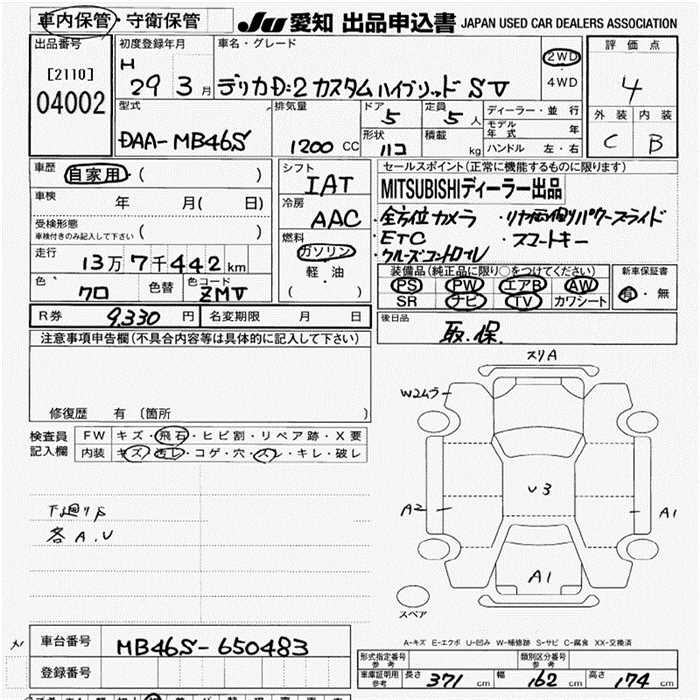 車内保管・守衛保管 JU 愛知 出品申込書 JAPAN USED CAR DEALERS ASSOCIATION
出品番号 [2110] 04002
初度登録年月 H 29 3 月
車名・グレード デリカD:2 カスタムハイブリッド SV
2WD・4WD
評価点 4
外装 C 内装 B
型式 DAA-MB46S
排気量 1200 CC
ドア 5 形状 ハコ
定員 5 人 積載 kg
ディーラー・並行
モデル年式 年
ハンドル 左・右
車歴 自家用・( )
車検 年 月( 日)
受検形態 車検付きのみ記入して下さい ( )
走行 13万7千442km
色 クロ 色替 色コード ZMV
シフト IAT
冷房 AAC
燃料 ガソリン 軽・油 ( )
セールスポイント(正常に機能するものに限ります)
MITSUBISHIディーラー出品
・全方位カメラ ・リヤ両側パワースライド
・ETC ・スマートキー
・クルーズコントロール
装備品(純正品に限り○をつけてください)
PS PW エアB AW
SR ナビ TV カワシート
新車保証書 有・無
R券 9,330 円 名変期限 月 日
後日品 取.保.
注意事項申告欄(不具合内容等は具体的に記入して下さい)
修復歴 有 〔箇所 〕
検査員記入欄
FW キズ・飛石・ヒビ割・リペア跡・X要
内装 キズ・汚レ・コゲ・穴・スレ・キレ・破レ
下廻りS
各A.U
スリA
W2ムラ
U3
A2
A1
A1
スペア
A-キズ E-エクボ U-凹み W-補修跡 S-サビ C-腐食 XX-交換済
車台番号 MB46S-650483
登録番号
形式指定番号 参考 類別区分番号 参考
車庫証明用 参考 長さ 371 cm 幅 162 cm 高さ 174 cm